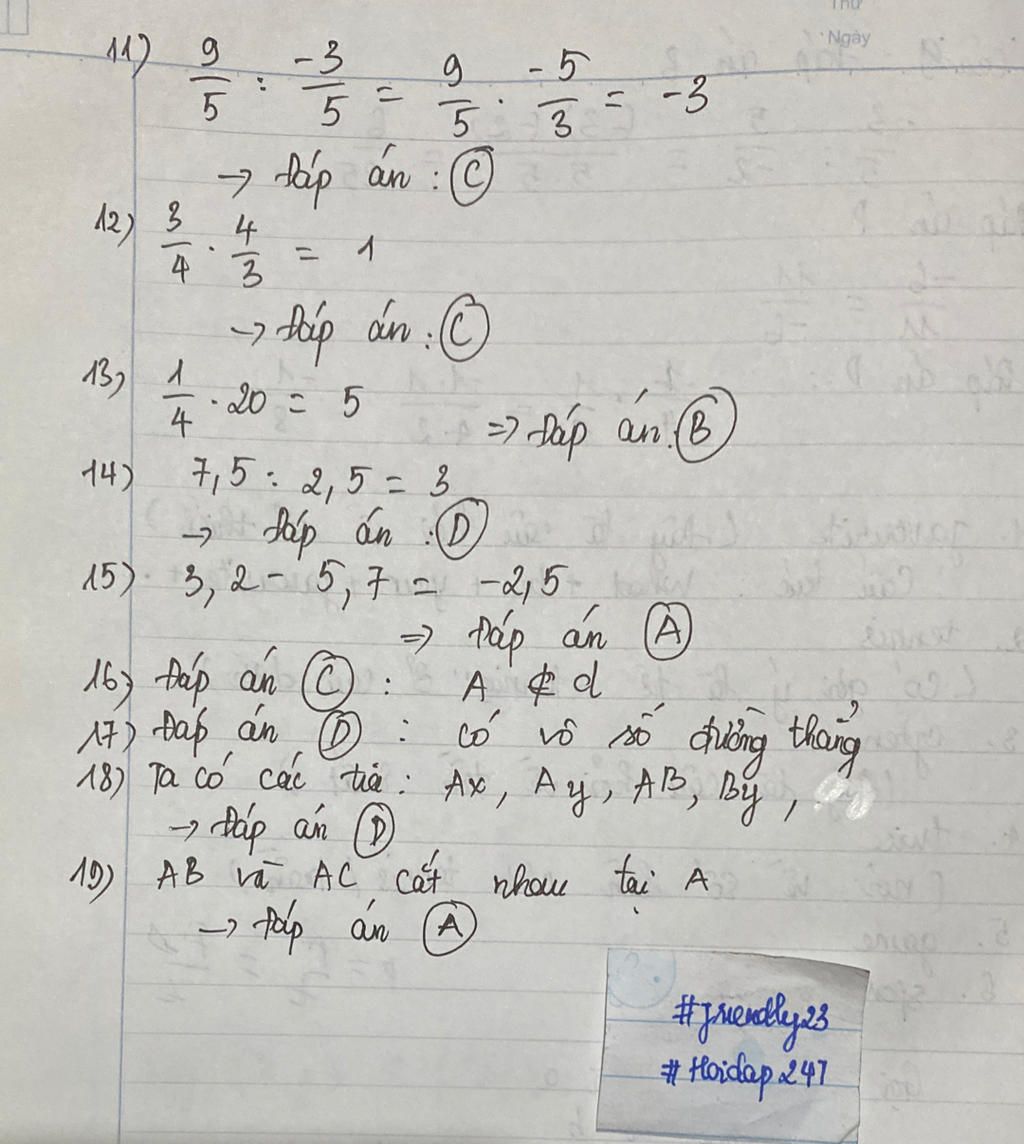 Thứ
Ngày
11) 9/5 : -3/5 = 9/5 . -5/3 = -3
→ Đáp án : C
12) 3/4 . 4/3 = 1
→ Đáp án : C
13) 1/4 . 20 = 5
=> Đáp án : B
14) 7,5 : 2,5 = 3
→ Đáp án : D
15) 3,2 - 5,7 = -2,5
=> Đáp án A
16) Đáp án C : A ∉ d
17) Đáp án D : có vô số đường thẳng
18) Ta có các tia : Ax, Ay, AB, By,
→ Đáp án D
19) AB và AC cắt nhau tại A
→ Đáp án A
#friendly23
#Hoidap247